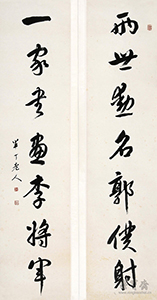 兩世勳名郭僕射
一家書畫李將軍
半丁老人